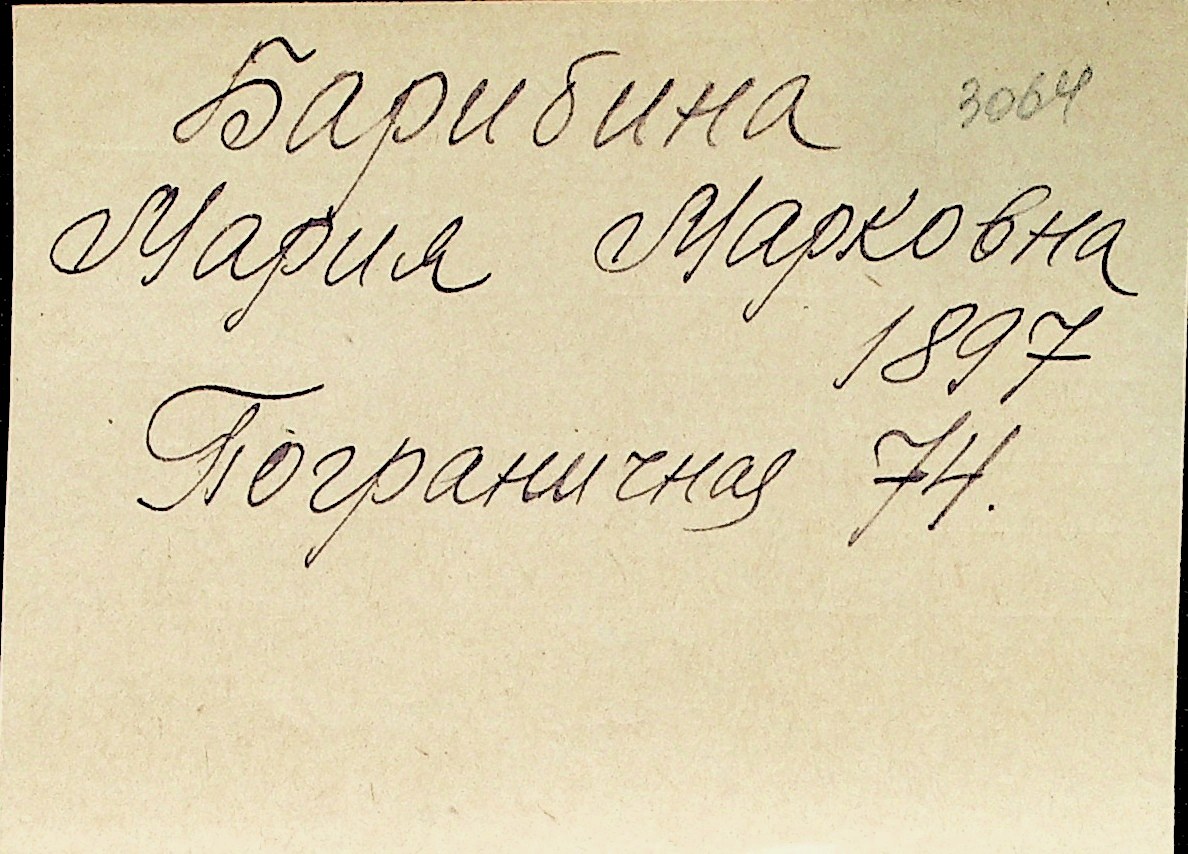 Барибина 3064
Мария Марковна
1897
Пограничная 74.